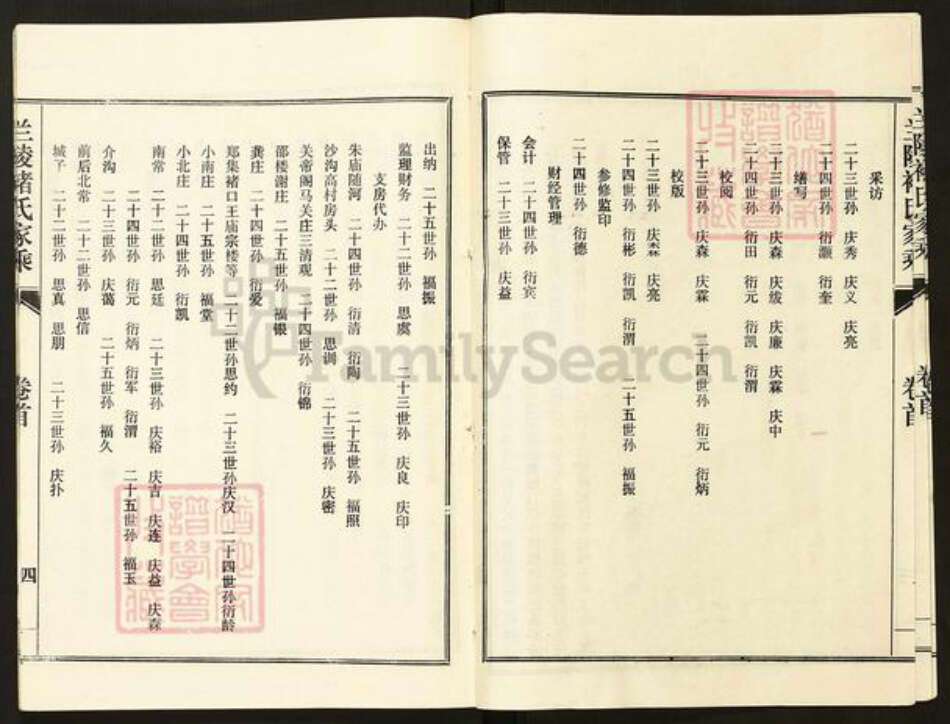 采访
二十三世孙 庆秀 庆义 庆亮
二十四世孙 衍灏 衍奎
缮写
二十三世孙 庆森 庆绂 庆廉 庆霖 庆中
二十四世孙 衍田 衍元 衍凯 衍渭
校阅
二十三世孙 庆森 庆霖 二十四世孙 衍元 衍炳
校版
二十三世孙 庆森 庆亮
二十四世孙 衍彬 衍凯 衍渭 二十五世孙 福振
参修监印
二十四世孙 衍德
财经管理
会计 二十四世孙 衍宾
保管 二十三世孙 庆益
兰陵褚氏家乘
卷首
出纳 二十五世孙 福振
监理财务 二十二世孙 思虞 二十三世孙 庆良 庆印
支房代办
朱庙随河 二十四世孙 衍清 衍陶 二十五世孙 福照
沙沟高村房头 二十二世孙 思训 二十三世孙 庆密
关帝阁马关庄三清观 二十四世孙 衍锦
邵楼谢庄 二十五世孙 福银
龚庄 二十四世孙 衍爱
郑集褚口王庙宗楼等 二十二世孙思约 二十三世孙庆汉 二十四世孙衍龄
小南庄 二十五世孙 福堂
小北庄 二十四世孙 衍凯
南常 二十二世孙 思廷 二十三世孙 庆裕 庆吉 庆连 庆益 庆森
二十四世孙 衍元 衍炳 衍军 衍渭 二十五世孙 福玉
介沟 二十三世孙 庆蔼 二十五世孙 福久
前后北常 二十二世孙 思信
城子 二十二世孙 思真 思朋 二十三世孙 庆扑
兰陵褚氏家乘
卷首
四
FamilySearch